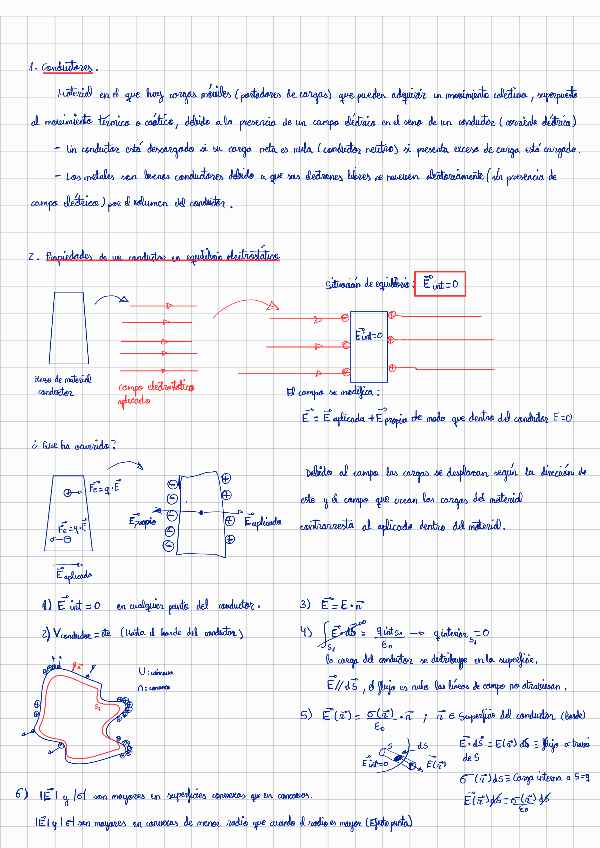 1. Conductores.
Material en el que hay cargas móviles (portadores de cargas) que pueden adquirir un movimiento colectivo, superpuesto
al movimiento térmico o caótico, debido a la presencia de un campo eléctrico en el seno de un conductor (corriente eléctrica)
- Un conductor está descargado si su carga neta es nula (conductor neutro) si presenta exceso de carga está cargado.
- Los metales son buenos conductores debido a que sus electrones libres se mueven aleatoriamente (sin presencia de
campo eléctrico) por el volumen del conductor.
2. Propiedades de un conductor en equilibrio electrostático
Situación de equilibrio: E⃗int=0
E⃗int=0
Trozo de material
conductor
Campo electrostático
aplicado
El campo se modifica:
E⃗ = E⃗aplicada + E⃗propio de modo que dentro del conductor E=0
¿Que ha ocurrido?
F⃗e=q·E⃗
F⃗e=q·E⃗
E⃗aplicado
E⃗propio
E⃗aplicado
Debido al campo las cargas se desplazan según la dirección de
este y el campo que crean las cargas del material
contrarresta al aplicado dentro del material.
1) E⃗int = 0 en cualquier punto del conductor.
2) Vconductor = cte (Hasta el borde del conductor)
3) E⃗ = E·n⃗
4) ∫ E⃗·dS⃗ = qint S1 / ε0 → qinterior S1 = 0
la carga del conductor se distribuye en la superficie.
E⃗//dS⃗, el flujo es nulo las líneas de campo no atraviesan.
U: cóncavo
∩: convexo
S1
5) E⃗(r⃗) = σ(r⃗)/ε0 · n⃗ ; r⃗ ∈ Superficie del conductor (borde)
E⃗int=0
S
dS
E⃗(r⃗)
E⃗·dS⃗ = E(r⃗) dS ≡ flujo a través
de S
σ(r⃗)dS ≡ Carga interna a S=q
E⃗(r⃗)dS = σ(r⃗)/ε0 dS
6) |E⃗| y |σ| son mayores en superficies convexas que en cóncavas.
|E⃗| y |σ| son mayores en convexas de menor radio que cuando el radio es mayor (Efecto punta)